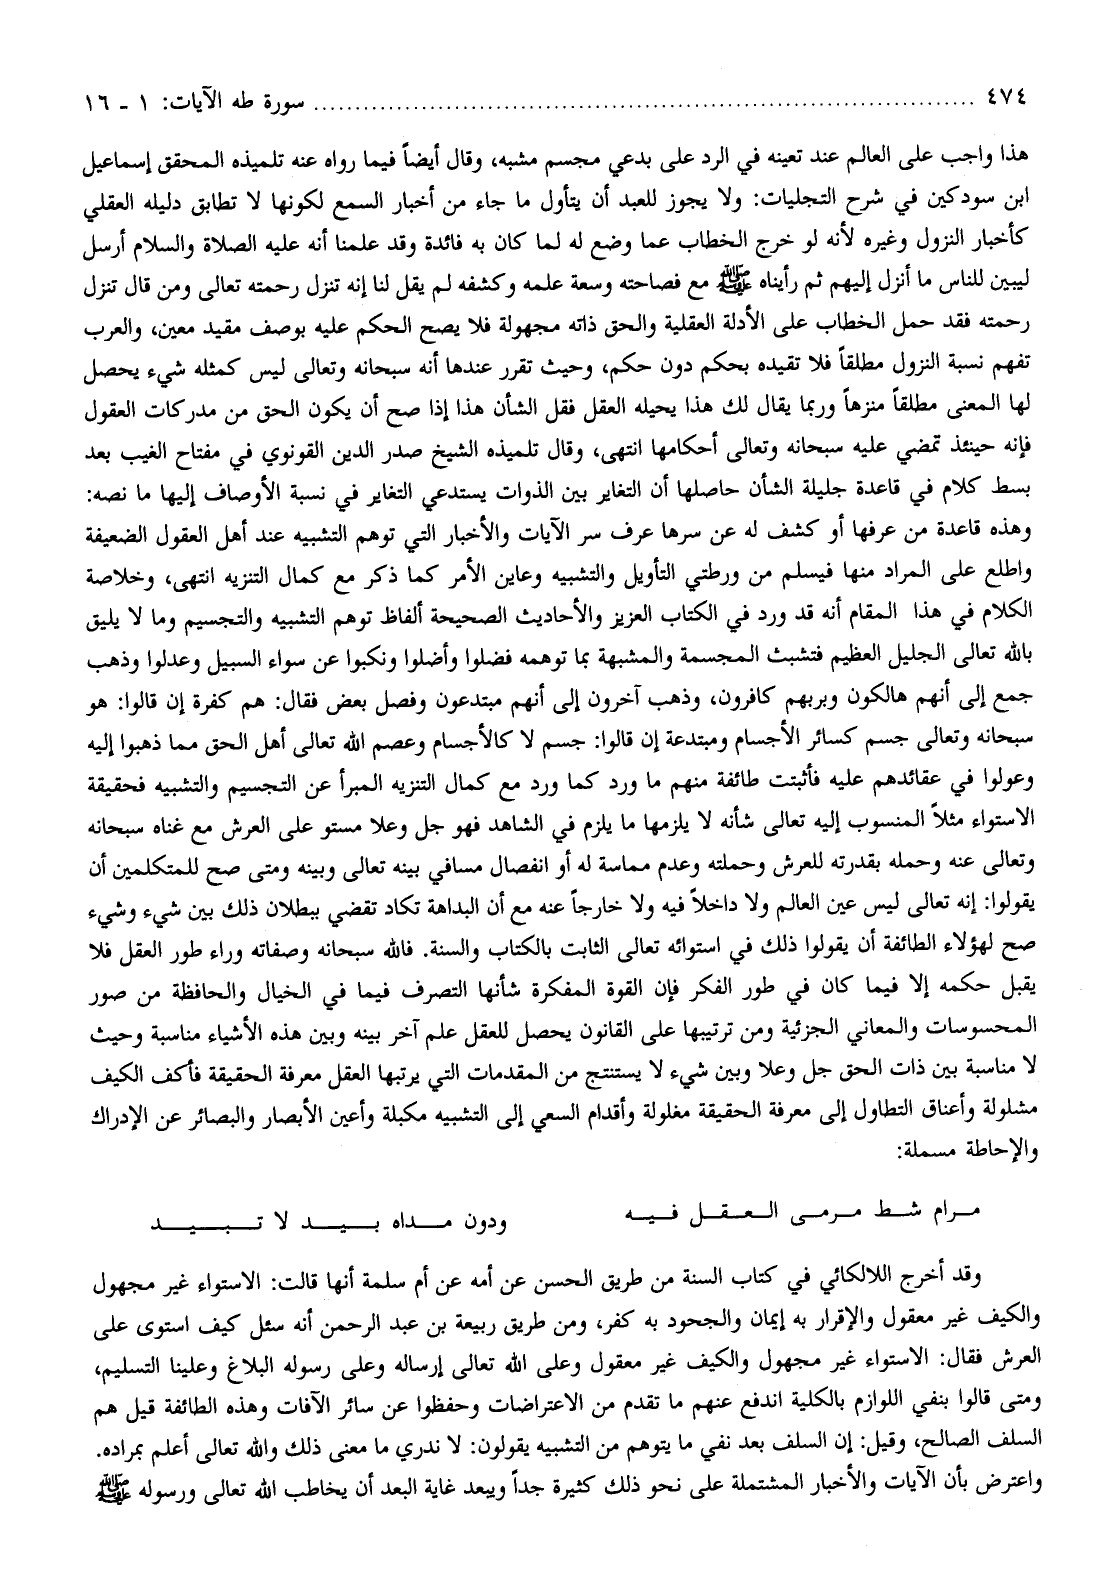 ٤٧٤ ................ سورة طه الآيات: ١ - ١٦
هذا واجب على العالم عند تعينه في الرد على بدعي مجسم مشبه، وقال أيضاً فيما رواه عنه تلميذه المحقق إسماعيل
ابن سودكين في شرح التجليات: ولا يجوز للعبد أن يتأول ما جاء من أخبار السمع لكونها لا تطابق دليله العقلي
كأخبار النزول وغيره لأنه لو خرج الخطاب عما وضع له لما كان به فائدة وقد علمنا أنه عليه الصلاة والسلام أرسل
ليبين للناس ما أنزل إليهم ثم رأيناه ﷺ مع فصاحته وسعة علمه وكشفه لم يقل لنا إنه تنزل رحمته تعالى ومن قال تنزل
رحمته فقد حمل الخطاب على الأدلة العقلية والحق ذاته مجهولة فلا يصح الحكم عليه بوصف مقيد معين، والعرب
تفهم نسبة النزول مطلقاً فلا تقيده بحكم دون حكم، وحيث تقرر عندها أنه سبحانه وتعالى ليس كمثله شيء يحصل
لها المعنى مطلقاً منزهاً وربما يقال لك هذا يحيله العقل فقل الشأن هذا إذا صح أن يكون الحق من مدركات العقول
فإنه حينئذ تمضي عليه سبحانه وتعالى أحكامها انتهى، وقال تلميذه الشيخ صدر الدين القونوي في مفتاح الغيب بعد
بسط كلام في قاعدة جليلة الشأن حاصلها أن التغاير بين الذوات يستدعي التغاير في نسبة الأوصاف إليها ما نصه:
وهذه قاعدة من عرفها أو كشف له عن سرها عرف سر الآيات والأخبار التي توهم التشبيه عند أهل العقول الضعيفة
واطلع على المراد منها فيسلم من ورطتي التأويل والتشبيه وعاين الأمر كما ذكر مع كمال التنزيه انتهى، وخلاصة
الكلام في هذا المقام أنه قد ورد في الكتاب العزيز والأحاديث الصحيحة ألفاظ توهم التشبيه والتجسيم وما لا يليق
بالله تعالى الجليل العظيم فتشبث المجسمة والمشبهة بما توهمه فضلوا وأضلوا ونكبوا عن سواء السبيل وعدلوا وذهب
جمع إلى أنهم هالكون وبربهم كافرون، وذهب آخرون إلى أنهم مبتدعون وفصل بعض فقال: هم كفرة إن قالوا: هو
سبحانه وتعالى جسم كسائر الأجسام ومبتدعة إن قالوا: جسم لا كالأجسام وعصم الله تعالى أهل الحق مما ذهبوا إليه
وعولوا في عقائدهم عليه فأثبتت طائفة منهم ما ورد كما ورد مع كمال التنزيه المبرأ عن التجسيم والتشبيه فحقيقة
الاستواء مثلاً المنسوب إليه تعالى شأنه لا يلزمها ما يلزم في الشاهد فهو جل وعلا مستو على العرش مع غناه سبحانه
وتعالى عنه وحمله بقدرته للعرش وحملته وعدم مماسة له أو انفصال مسافي بينه تعالى وبينه ومتى صح للمتكلمين أن
يقولوا: إنه تعالى ليس عين العالم ولا داخلاً فيه ولا خارجاً عنه مع أن البداهة تكاد تقضي ببطلان ذلك بين شيء وشيء
صح لهؤلاء الطائفة أن يقولوا ذلك في استوائه تعالى الثابت بالكتاب والسنة. فالله سبحانه وصفاته وراء طور العقل فلا
يقبل حكمه إلا فيما كان في طور الفكر فإن القوة المفكرة شأنها التصرف فيما في الخيال والحافظة من صور
المحسوسات والمعاني الجزئية ومن ترتيبها على القانون يحصل للعقل علم آخر بينه وبين هذه الأشياء مناسبة وحيث
لا مناسبة بين ذات الحق جل وعلا وبين شيء لا يستنتج من المقدمات التي يرتبها العقل معرفة الحقيقة فأكف الكيف
مشلولة وأعناق التطاول إلى معرفة الحقيقة مغلولة وأقدام السعي إلى التشبيه مكبلة وأعين الأبصار والبصائر عن الإدراك
والإحاطة مسملة:
مرام شط مرمى العقل فيه   ودون مداه بيد لا تبيد
وقد أخرج اللالكائي في كتاب السنة من طريق الحسن عن أمه عن أم سلمة أنها قالت: الاستواء غير مجهول
والكيف غير معقول والإقرار به إيمان والجحود به كفر، ومن طريق ربيعة بن عبد الرحمن أنه سئل كيف استوى على
العرش فقال: الاستواء غير مجهول والكيف غير معقول وعلى الله تعالى إرساله وعلى رسوله البلاغ وعلينا التسليم،
ومتى قالوا بنفي اللوازم بالكلية اندفع عنهم ما تقدم من الاعتراضات وحفظوا عن سائر الآفات وهذه الطائفة قيل هم
السلف الصالح، وقيل: إن السلف بعد نفي ما يتوهم من التشبيه يقولون: لا ندري ما معنى ذلك والله تعالى أعلم بمراده.
واعترض بأن الآيات والأخبار المشتملة على نحو ذلك كثيرة جداً ويبعد غاية البعد أن يخاطب الله تعالى ورسوله ﷺ